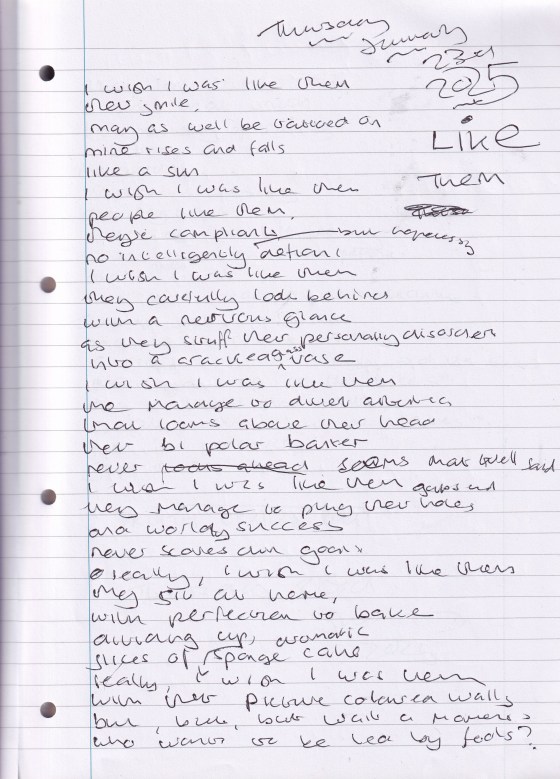 Thursday
January
23rd
2025
LIKE
THEM
I wish I was like them
their smile,
may as well be tattooed on
mine rises and falls
like a sun
I wish I was like them
people like them,
but happening
no intelligently defined
I wish I was like them
they carefully look behind
with a nervous glance
as they stuff their personality disorder
into a cracked glass vase
I wish I was like them
who manage to divert
that looms above their head
their bi polar banter
never seems that well said
I wish I was like them
they manage to plug their holes gaps and
and worldly success
never scores own goals
really, I wish I was like them
they sit at home,
with perfection to bake
dividing up, aromatic
slices of sponge cake
really, I wish I was them
with their picture coloured walls
but, but, but wait a moment
who wants to be led by fools?